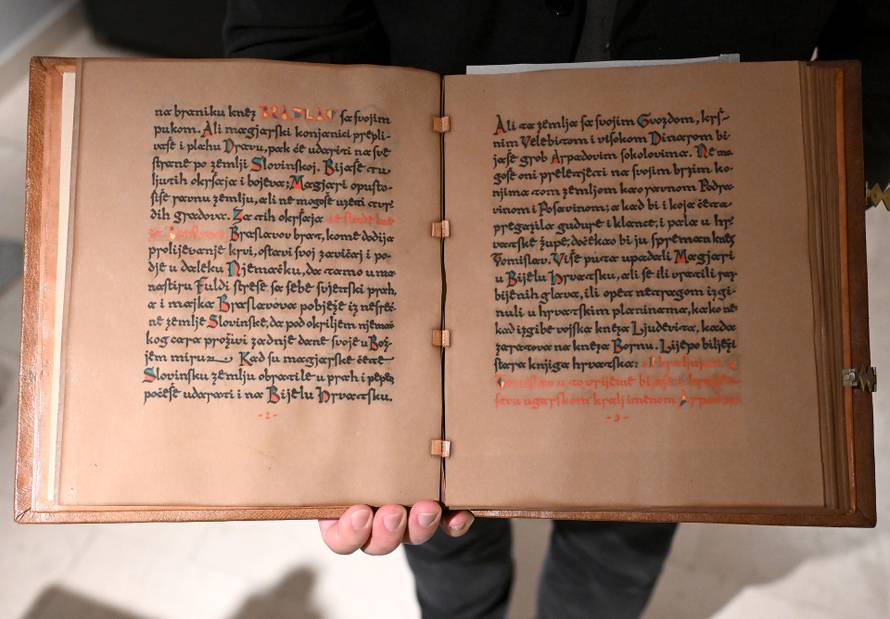 na braniku knez BRASLAV sa svojim
pukom. Ali magjarski konjanici prepli-
vaše i plahu Dravu, pak će udariti na sve
strane po zemlji Slovinskoj. Bijaše tu
ljutih okršaja i bojeva; Magjari opusto-
šiše ravnu zemlju, ali ne mogoše uzeti tvr-
dih gradova. Za tih okršaja ne stade kne-
za Braslava. Braslavov brat, kome dodija
prolijevanje krvi, ostavi svoj zavičaj i po-
dje u daleku Njemačku, da tamo u ma-
nastiru Fuldi strese sa sebe svjetski prah,
a i majka Braslavova pobježe iz nesreć-
ne zemlje Slovinske, da pod okriljem njemač-
kog cara proživi zadnje dane svoje u Bož-
jem miru. Kad su magjarske čete
Slovinsku zemlju obratile u prah i pepeo,
počeše udarati i na Bijelu Hrvatsku.
-2-
Ali ta zemlja sa svojim Gvozdom, krš-
nim Velebitom i visokom Dinarom bi-
jaše grob Arpadovim sokolovima. Ne mo-
goše oni preletjeti na svojim brzim ko-
njima tom zemljom kao ravnom Podra-
vinom i Posavinom; a kad bi i koja četa
pregazila gudure i klance, i pala u hr-
vatske župe, dočekao bi ju spreman knez
Tomislav. Više puta upadali Magjari
u Bijelu Hrvatsku, ali se ili vratili raz-
bijenih glava, ili opet netragom izgi-
nuli u hrvatskim planinama, kako ne-
kad izgibe vojska kneza Ljudevita, kada
zaratova na kneza Bornu. Lijepo bilježi
stara knjiga hrvatska: I kraljujući
Tomislav u to vrijeme bijaše i kralje-
stvu ugarskom kralj imenom Arpad
-3-